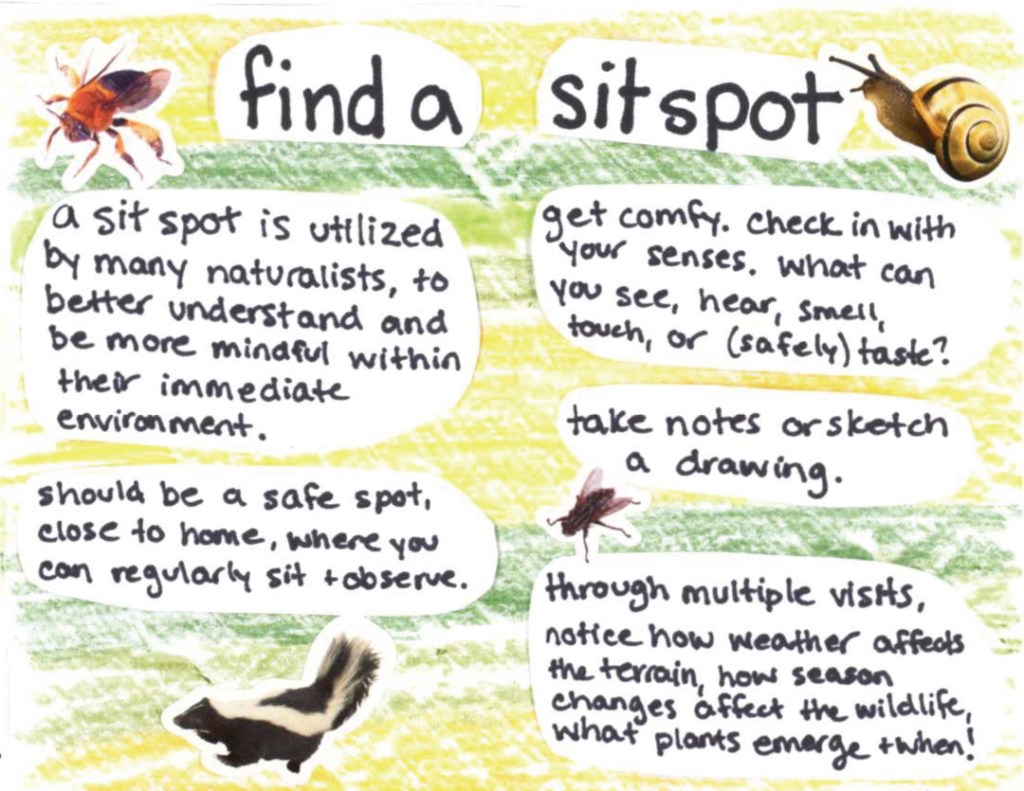 find a sit spot
a sit spot is utilized
by many naturalists, to
better understand and
be more mindful within
their immediate
environment.
should be a safe spot,
close to home, where you
can regularly sit + observe.
get comfy. check in with
your senses. what can
you see, hear, smell,
touch, or (safely) taste?
take notes or sketch
a drawing.
through multiple visits,
notice how weather affects
the terrain, how season
changes affect the wildlife,
what plants emerge + when!